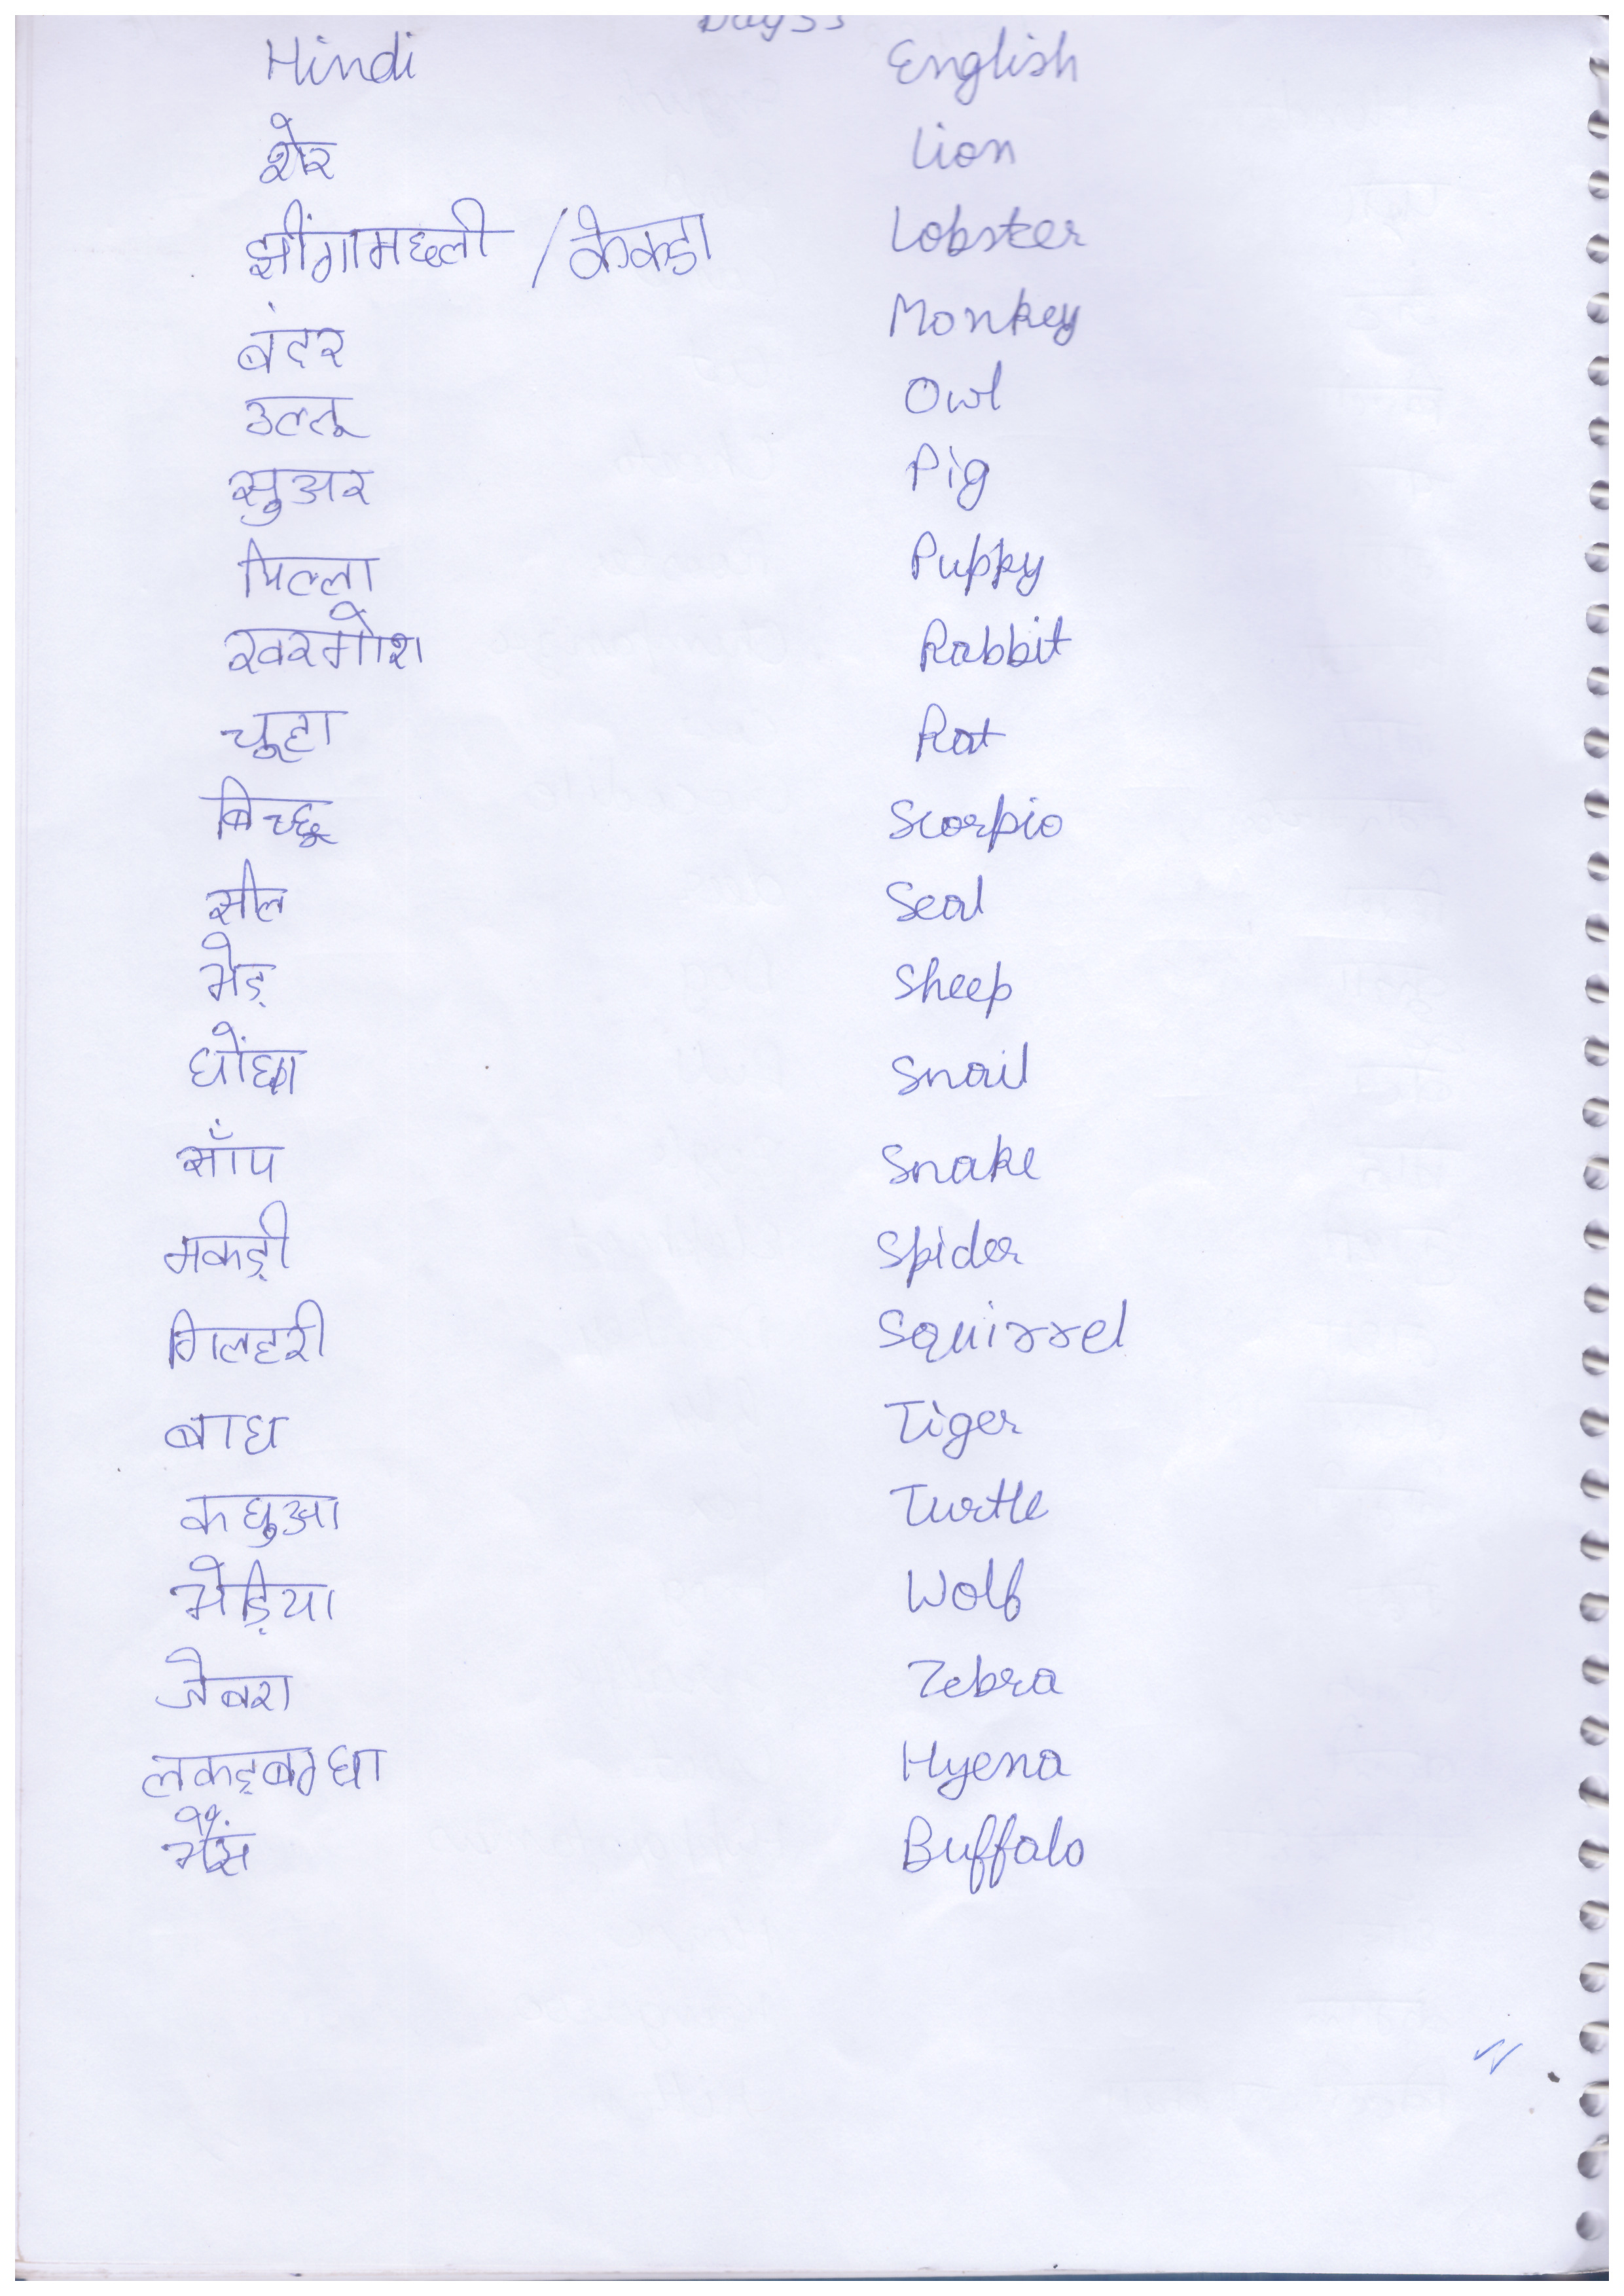 Day 33
Hindi English
शेर Lion
झींगामछली / केकडा Lobster
बंदर Monkey
उल्लू Owl
सुअर Pig
पिल्ला Puppy
खरगोश Rabbit
चुहा Rat
बिच्छू Scorpio
सील Seal
भेड़ Sheep
घोंघा Snail
साँप Snake
मकड़ी Spider
गिलहरी Squirrel
बाघ Tiger
कछुआ Turtle
भेड़िया Wolf
जेबरा Zebra
लकड़बग्घा Hyena
भैंस Buffalo